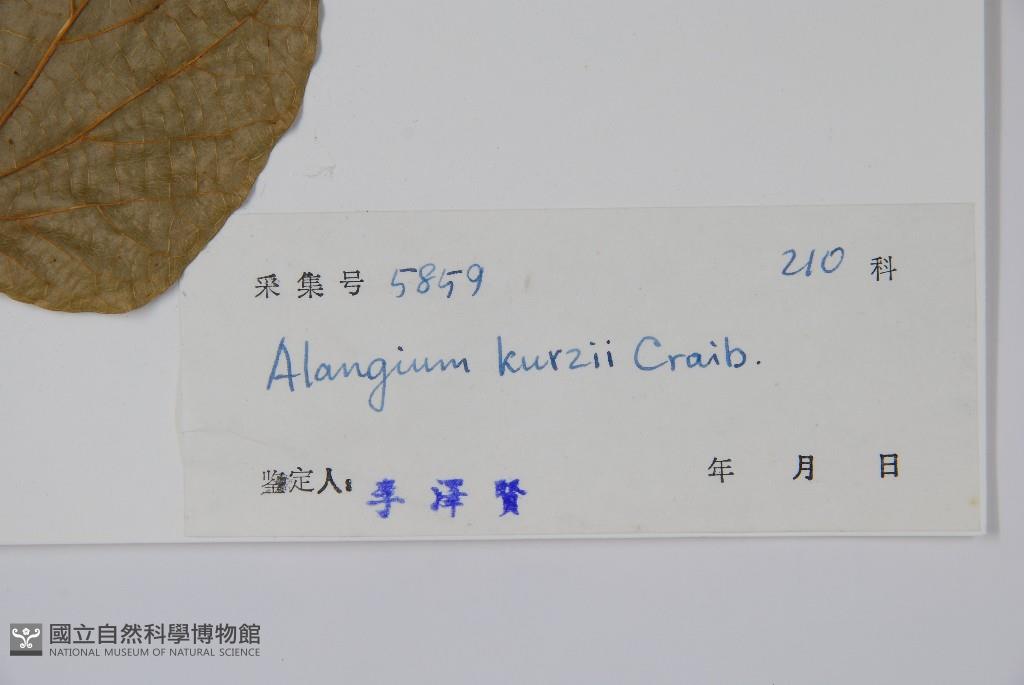 采集号 5859 210 科
Alangium kurzii Craib.
鉴定人: 李澤賢 年 月 日
國立自然科學博物館
NATIONAL MUSEUM OF NATURAL SCIENCE